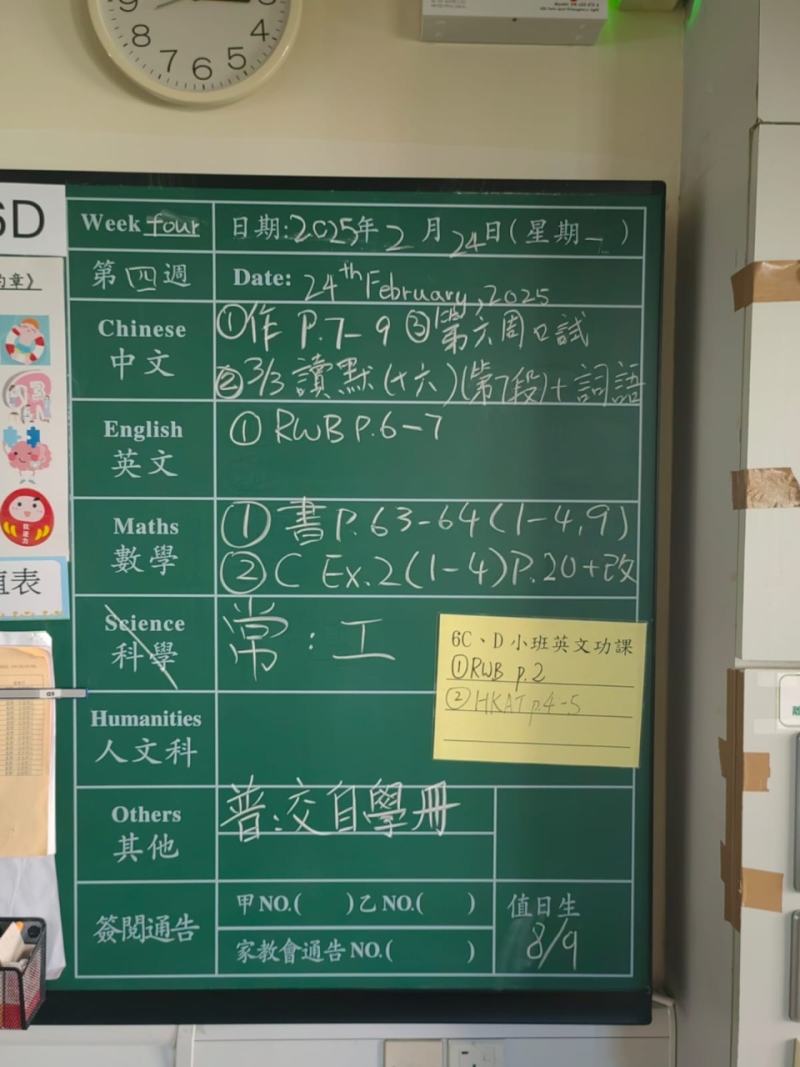 9 8 7 6 5 4
6D
Week four
日期:2025年2月24日(星期一)
第四週
Date: 24th February, 2025
Chinese
中文
①作 P.7-9 ③第六周口試
②3/3 讀默(十六)(第7段)+詞語
English
英文
① RWB P.6-7
Maths
數學
① 書 P.63-64(1-4,9)
② C Ex.2(1-4)P.20+改
Science
科學
常:工
6C、D小班英文功課
①RWB p.2
②HKAT p.4-5
Humanities
人文科
Others
其他
普:交自學冊
簽閱通告
甲NO.( )乙NO.( )
家教會通告NO.( )
值日生
8/9